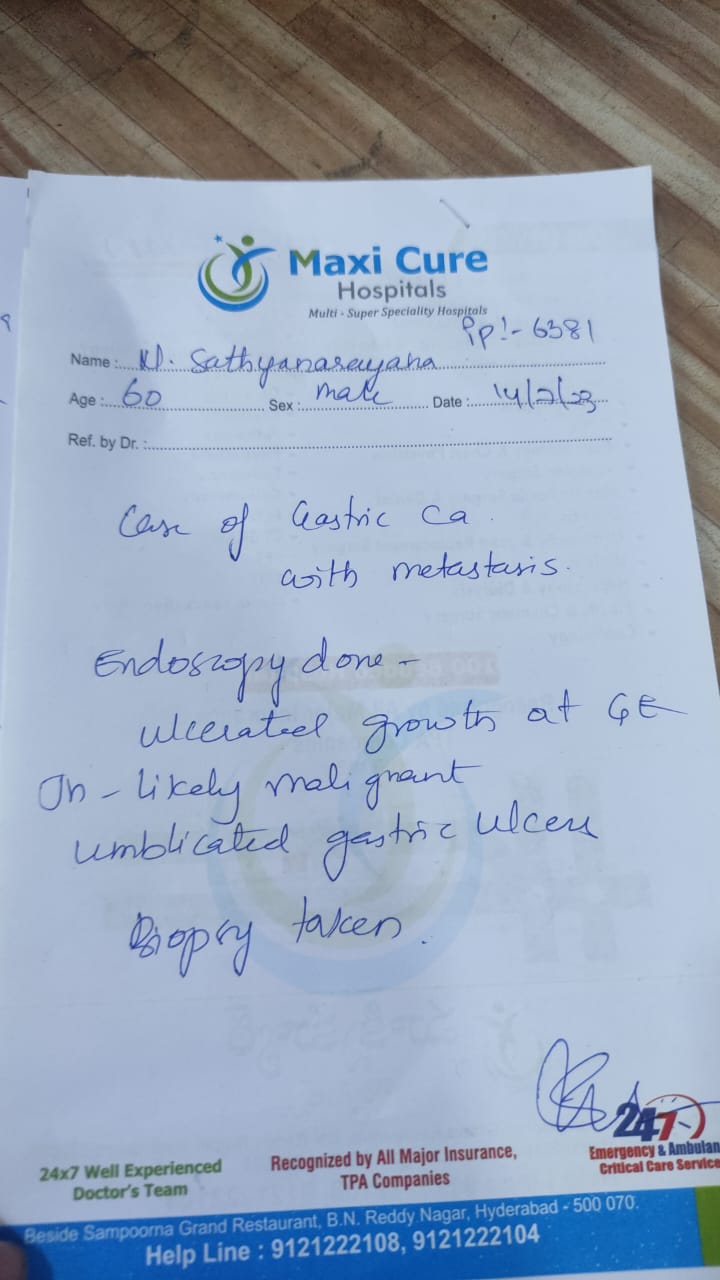 Maxi Cure
Hospitals
Multi - Super Speciality Hospitals
Pp:- 6381
Name : N. Sathyanarayana
Age : 60 Sex : male Date : 14/2/23
Ref. by Dr. :
Case of Gastric Ca.
with metastasis.
Endoscopy done -
ulcerated growth at GE
Jn - likely malignant
umblicated gastric ulcers
Biopsy taken.
24x7 Well Experienced
Doctor's Team
Recognized by All Major Insurance,
TPA Companies
247
Emergency & Ambulan
Critical Care Service
Beside Sampoorna Grand Restaurant, B.N. Reddy Nagar, Hyderabad - 500 070.
Help Line : 9121222108, 9121222104